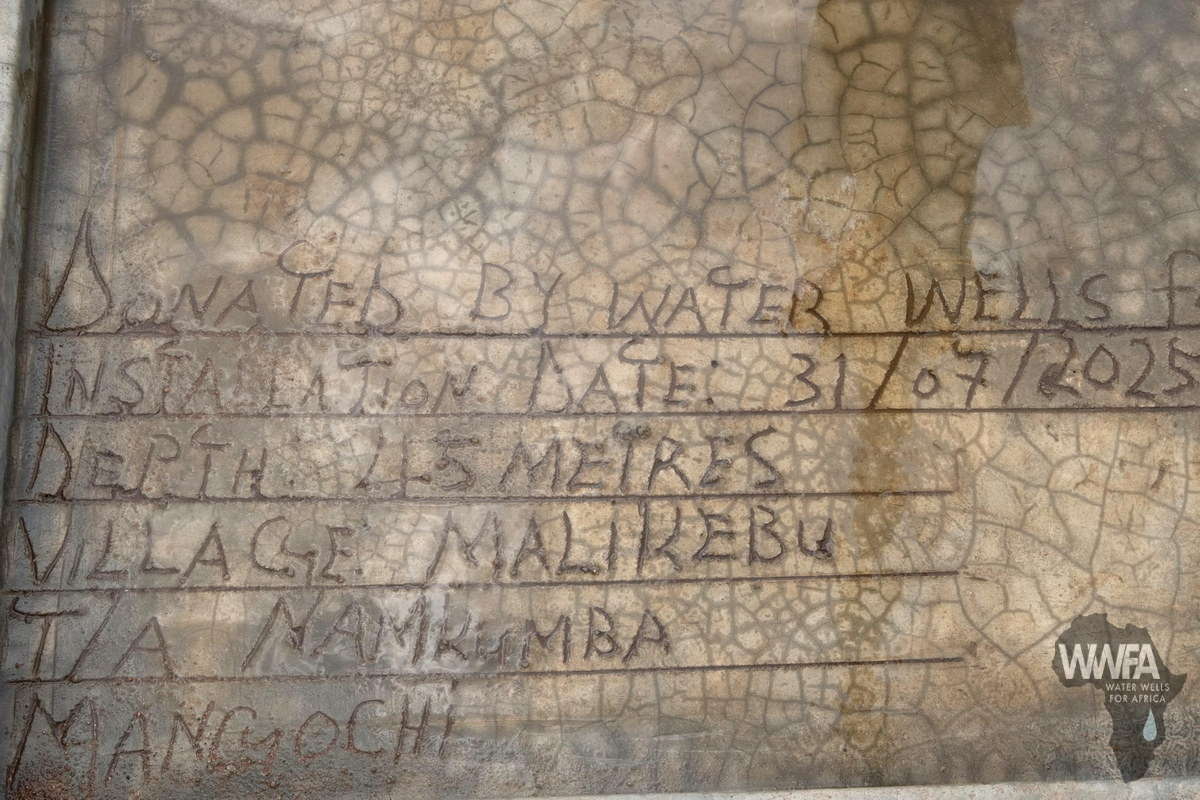 DONATED BY WATER WELLS F
INSTALLATION DATE: 31/07/2025
DEPTH: 45 METRES
VILLAGE: MALIKEBU
T/A NAMKUMBA
MANGOCHI
WWFA
WATER WELLS
FOR AFRICA